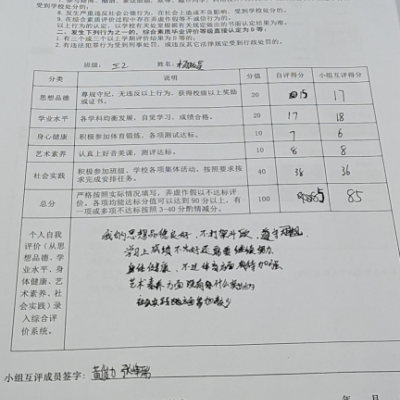 学校处分的;
8、发生严重违反社会公德行为,在社会上造成不良影响,受到学校处分的;
9、在综合素质评价过程中存在弄虚作假等不诚信行为的。
二、发生下列行为之一的,综合素质毕业评价等级直接认定为D等:
1、有三个或二个以上学期评价结果为D等的。
2、有违法犯罪行为受到刑事处罚,或违反其它法律规定受到行政处罚的。
班级: 姓名:
分类 说明 分值 自评得分 小组互评得分
思想品德 尊规守纪,无违反以上行为,获得校级以上奖励或证书。 20 15 17
学业水平 各学科均衡发展,自觉学习,成绩合格。 20 17 18
身心健康 积极参加体育锻炼,各项测试达标。 10 7 6
艺术素养 认真上好音美课,测评达标。 10 8 8
社会实践 积极参加班级,学校各项集体活动,按照要求按求完成安排任务。 40 38 36
总分 严格按照实际情况填写,弄虚作假以不达标评价。各项均能达标分值可以达到90分以上,有一项或多项不达标按照3-40分酌情减分。 100 85 85
个人自我
评价(从思
想品德、学
业水平、身
体健康、艺
术素养、社
会实践)录
入综合评
价系统。
我的思想品德良好,不打架斗殴,
学习上成绩不太好还需要继续努力
身体健康,不过体育方面有待加强
艺术素养方面没有什么
小组互评成员签字:
年 月